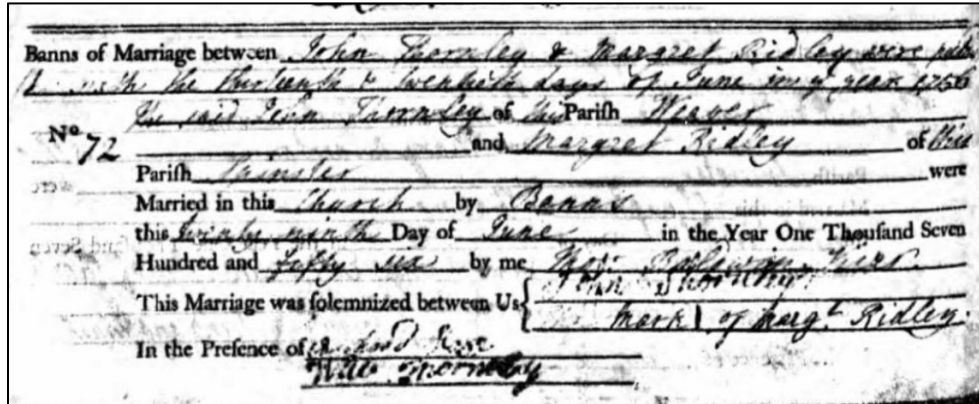 Banns of Marriage between John Thornley & Margret Ridley were
the thirteenth & twentieth days of June in y year 1756
The said John Thornley of this Parish Weaver
No. 72 and Margret Ridley of this
Parish Spinster were
Married in this Church by Banns
this twenty ninth Day of June in the Year One Thousand Seven
Hundred and fifty six by me
This Marriage was solemnized between Us John Thornley
mark of Margt. Ridley
In the Presence of
Thornley